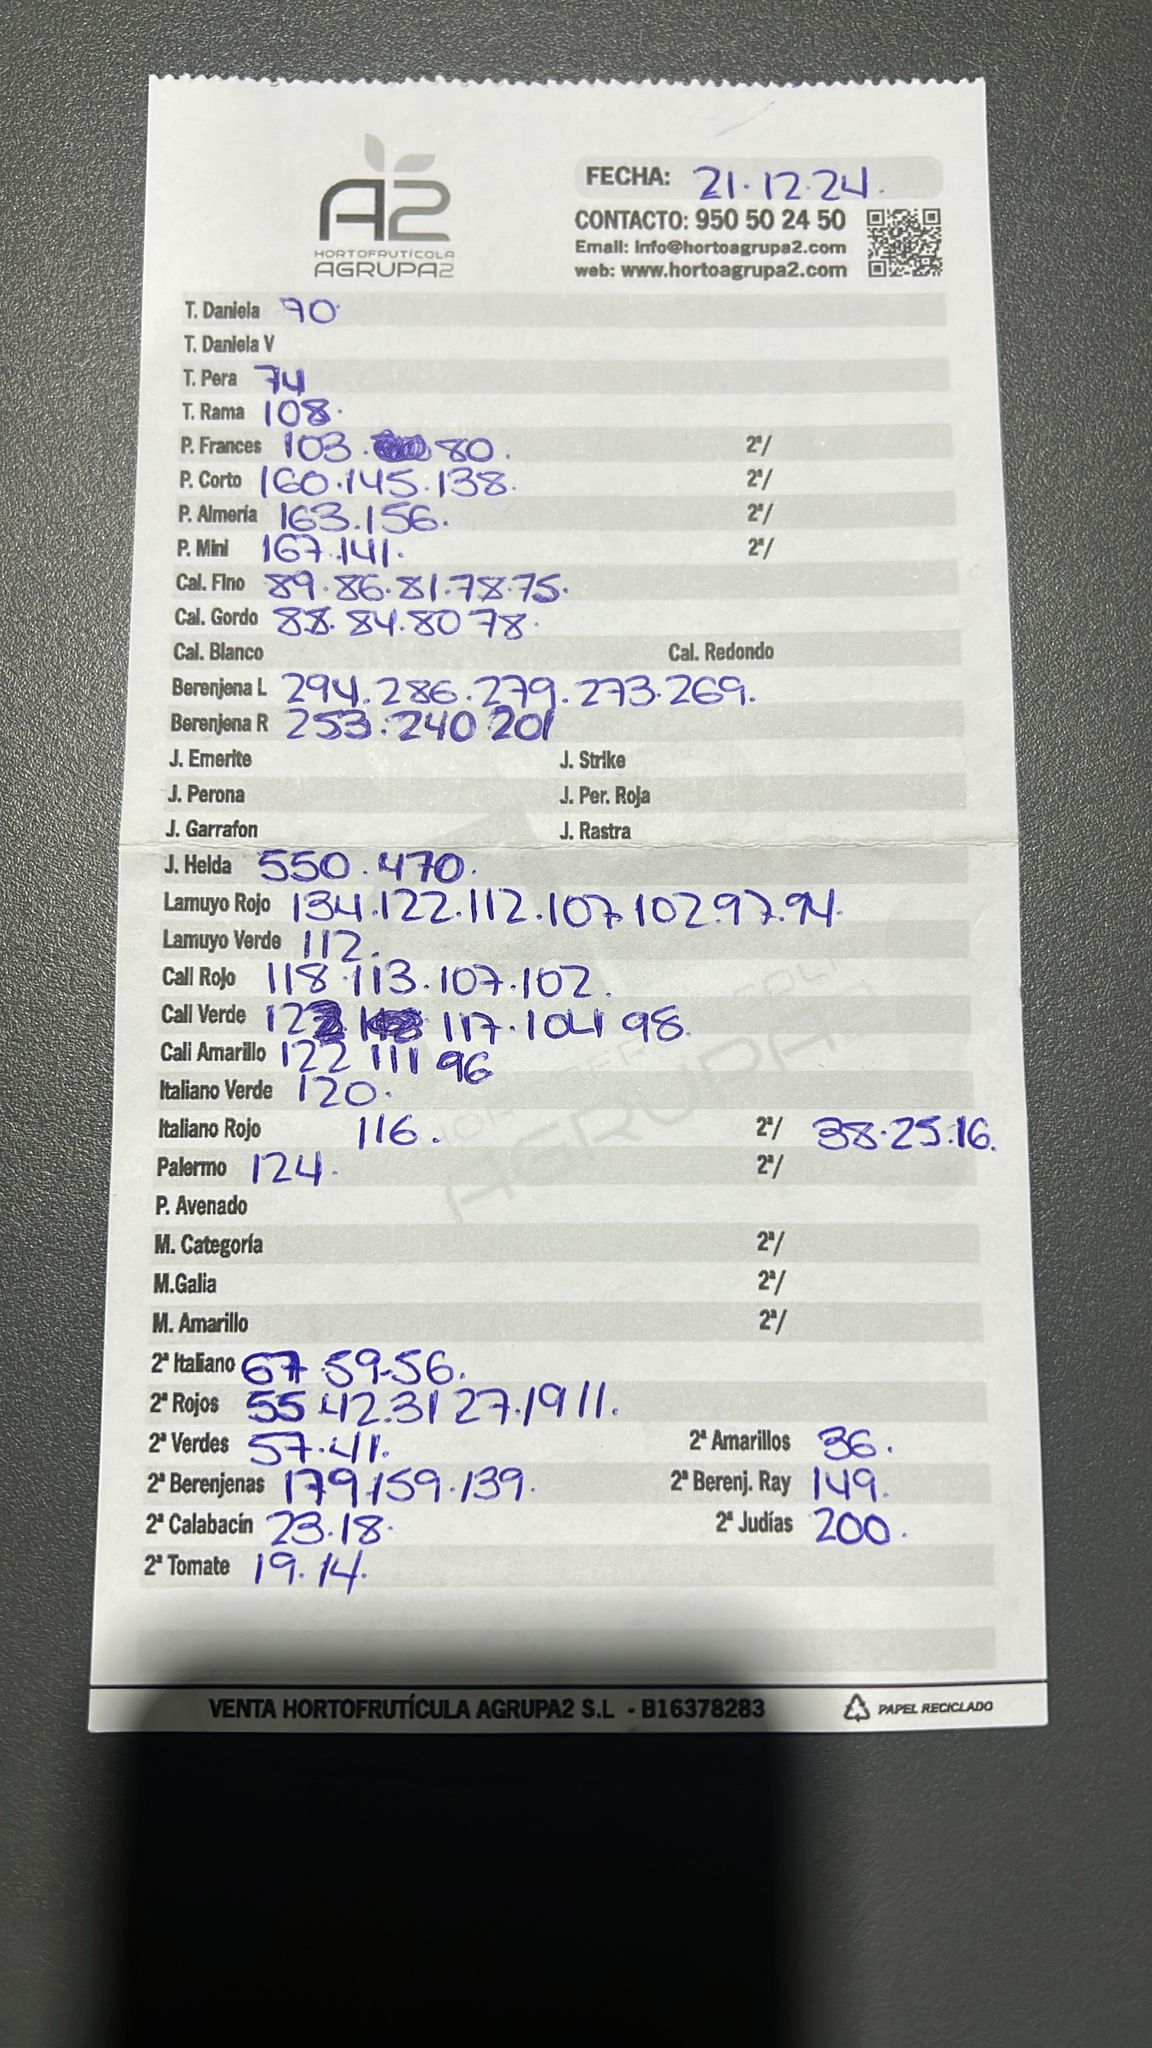 A2
HORTOFRUTÍCOLA
AGRUPA2
FECHA: 21.12.24.
CONTACTO: 950 50 24 50
Email: info@hortoagrupa2.com
web: www.hortoagrupa2.com
T. Daniela 90.
T. Daniela V
T. Pera 74
T. Rama 108.
P. Frances 103. 80. 2ª/
P. Corto 160.145.138. 2ª/
P. Almería 163.156. 2ª/
P. Mini 167.141. 2ª/
Cal. Fino 89.86.81.78.75.
Cal. Gordo 88.84.80 78.
Cal. Blanco Cal. Redondo
Berenjena L 294.286.279.273.269.
Berenjena R 253.240.201
J. Emerite J. Strike
J. Perona J. Per. Roja
J. Garrafon J. Rastra
J. Helda 550.470.
Lamuyo Rojo 134.122.112.107.102.97.94.
Lamuyo Verde 112.
Cali Rojo 118.113.107.102.
Cali Verde 117.104 98.
Cali Amarillo 122 111 96
Italiano Verde 120.
Italiano Rojo 116. 2ª/ 38.25.16.
Palermo 124. 2ª/
P. Avenado
M. Categoría 2ª/
M.Galia 2ª/
M. Amarillo 2ª/
2ª Italiano 67.59.56.
2ª Rojos 55.42.31 27.19 11.
2ª Verdes 57.41. 2ª Amarillos 36.
2ª Berenjenas 179.159.139. 2ª Berenj. Ray 149.
2ª Calabacín 23.18. 2ª Judías 200.
2ª Tomate 19.14.
VENTA HORTOFRUTÍCULA AGRUPA2 S.L - B16378283 PAPEL RECICLADO